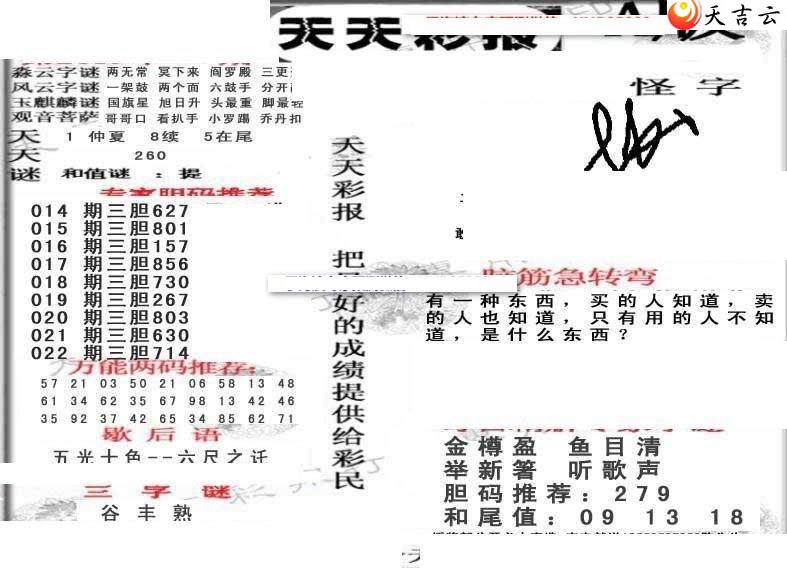 天吉云
天天彩报
怪字
森云字谜 两无常 冥下来 阎罗殿 三更
风云字谜 一架鼓 两个面 六鼓手 分开
玉麒麟谜 国旗星 旭日升 头最重 脚最轻
观音菩萨 哥哥口 看扒手 小罗踢 乔丹扣
天 1 仲夏 8续 5在尾
天 260
谜 和值谜 : 提
专家胆码推荐
014 期三胆627
015 期三胆801
016 期三胆157
017 期三胆856
018 期三胆730
019 期三胆267
020 期三胆803
021 期三胆630
022 期三胆714
万能两码推荐:
57 21 03 50 21 06 58 13 48
61 34 62 35 67 98 13 42 46
35 92 37 42 65 34 85 62 71
歇后语
五光十色--六尺之讬
三字谜
谷丰熟
天天彩报 把 好的成绩提供给彩民
脑筋急转弯
有一种东西，买的人知道，卖
的人也知道，只有用的人不知
道，是什么东西？
金樽盈 鱼目清
举新箸 听歌声
胆码推荐: 279
和尾值: 09 13 18